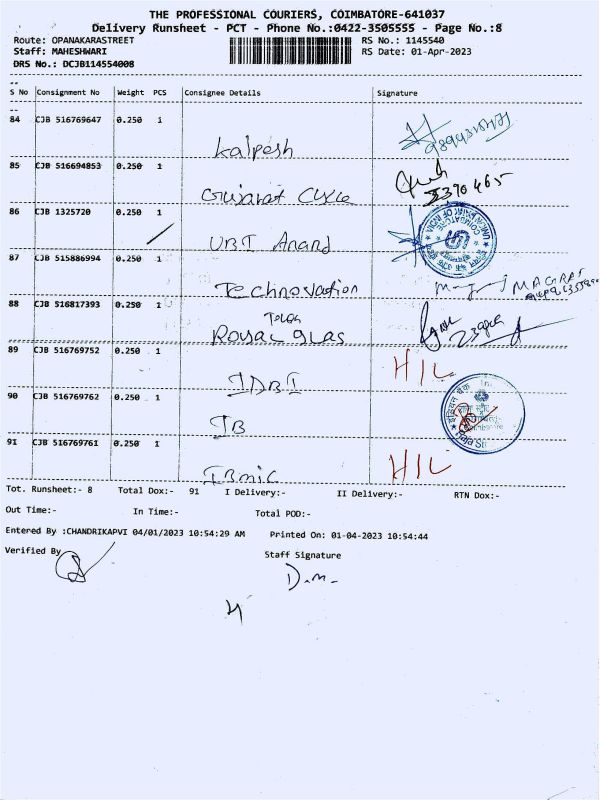 THE PROFESSIONAL COURIERS, COIMBATORE-641037
Delivery Runsheet - PCT - Phone No.:0422-3505555 - Page No.:8
Route: OPANAKARASTREET
RS No.: 1145540
Staff: MAHESHWARI
RS Date: 01-Apr-2023
DRS No.: DCJB114554008
S No Consignment No Weight PCS Consignee Details Signature
84 CJB 516769647 0.250 1
Kalpesh
85 CJB 516694853 0.250 1
Gujarat Cycle
86 CJB 1325720 0.250 1
UBI Anand
87 CJB 515886994 0.250 1
Technovation
88 CJB 516817393 0.250 1
Royal glas
89 CJB 516769752 0.250 1
H/L
IDBI
90 CJB 516769762 0.250 1
IB
91 CJB 516769761 0.250 1
H/L
Tot. Runsheet:- 8 Total Dox:- 91 I Delivery:- II Delivery:- RTN Dox:-
Out Time:- In Time:- Total POD:-
Entered By :CHANDRIKAPVI 04/01/2023 10:54:29 AM Printed On: 01-04-2023 10:54:44
Verified By
Staff Signature
D.m.